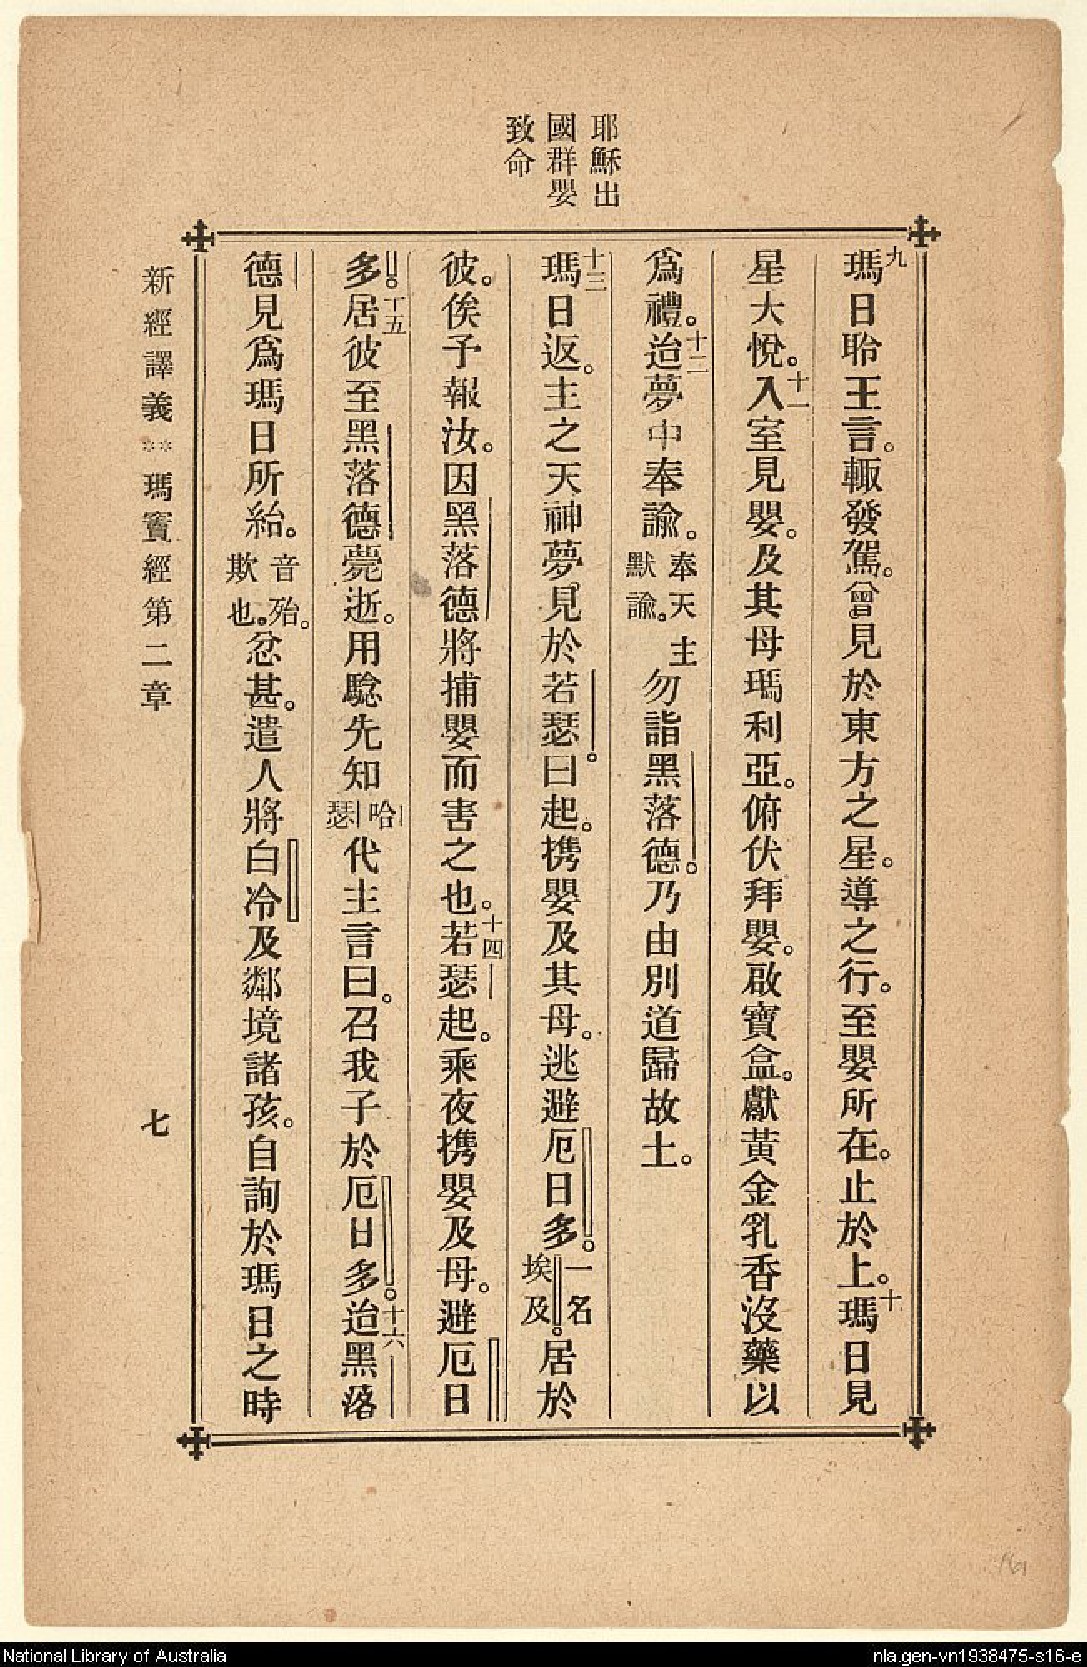 耶穌出
國群嬰
致命
九瑪日聆王言。輙發駕。曾見於東方之星。導之行。至嬰所在。止於上。十瑪日見
星大悅。十一入室見嬰。及其母瑪利亞。俯伏拜嬰。啟寶盒。獻黃金乳香沒藥以
爲禮。十二迨夢中奉諭。奉天主默諭。勿詣黑落德。乃由別道歸故土。
十三瑪日返。主之天神夢見於若瑟。曰起。携嬰及其母。逃避厄日多。一名埃及。居於
彼。俟予報汝。因黑落德將捕嬰而害之也。十四若瑟起。乘夜携嬰及母。避厄日
多。十五居彼至黑落德薨逝。用騐先知哈瑟代主言曰。召我子於厄日多。十六迨黑落
德見爲瑪日所紿。音殆。欺也。忿甚。遣人將白冷及鄰境諸孩。自詢於瑪日之時
新經譯義**瑪竇經第二章
七
National Library of Australia
nla.gen-vn1938475-s16-e